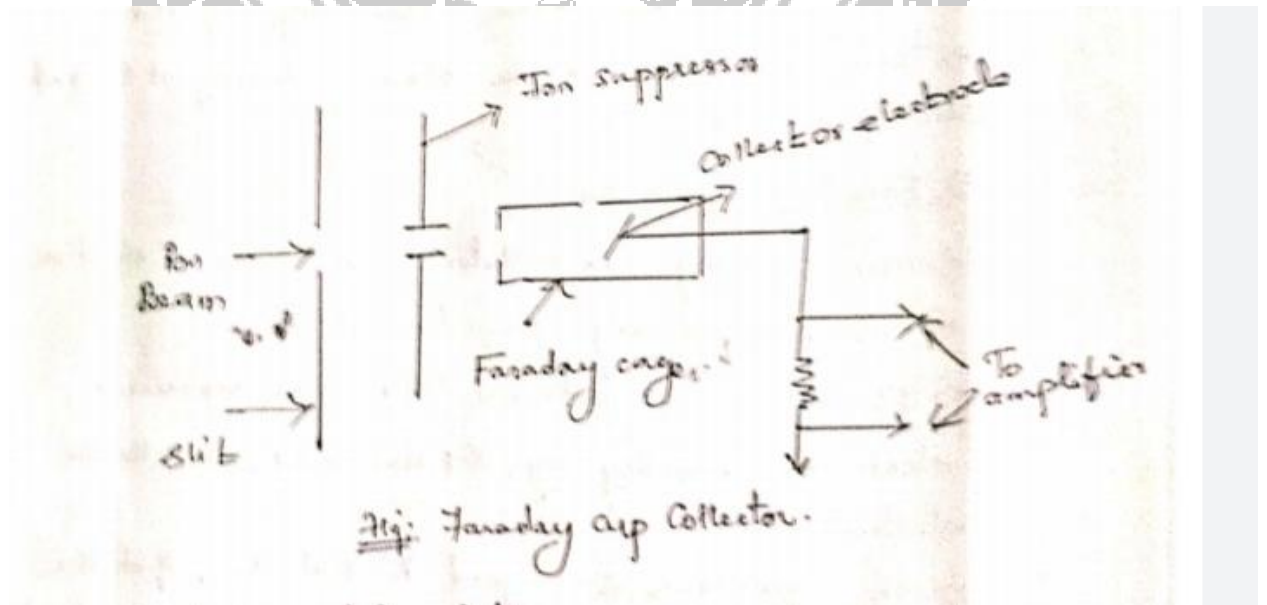 Ion suppressor
Collector electrode
Ion
Beam
Faraday cage
To
amplifier
Slit
Fig: Faraday cup Collector.